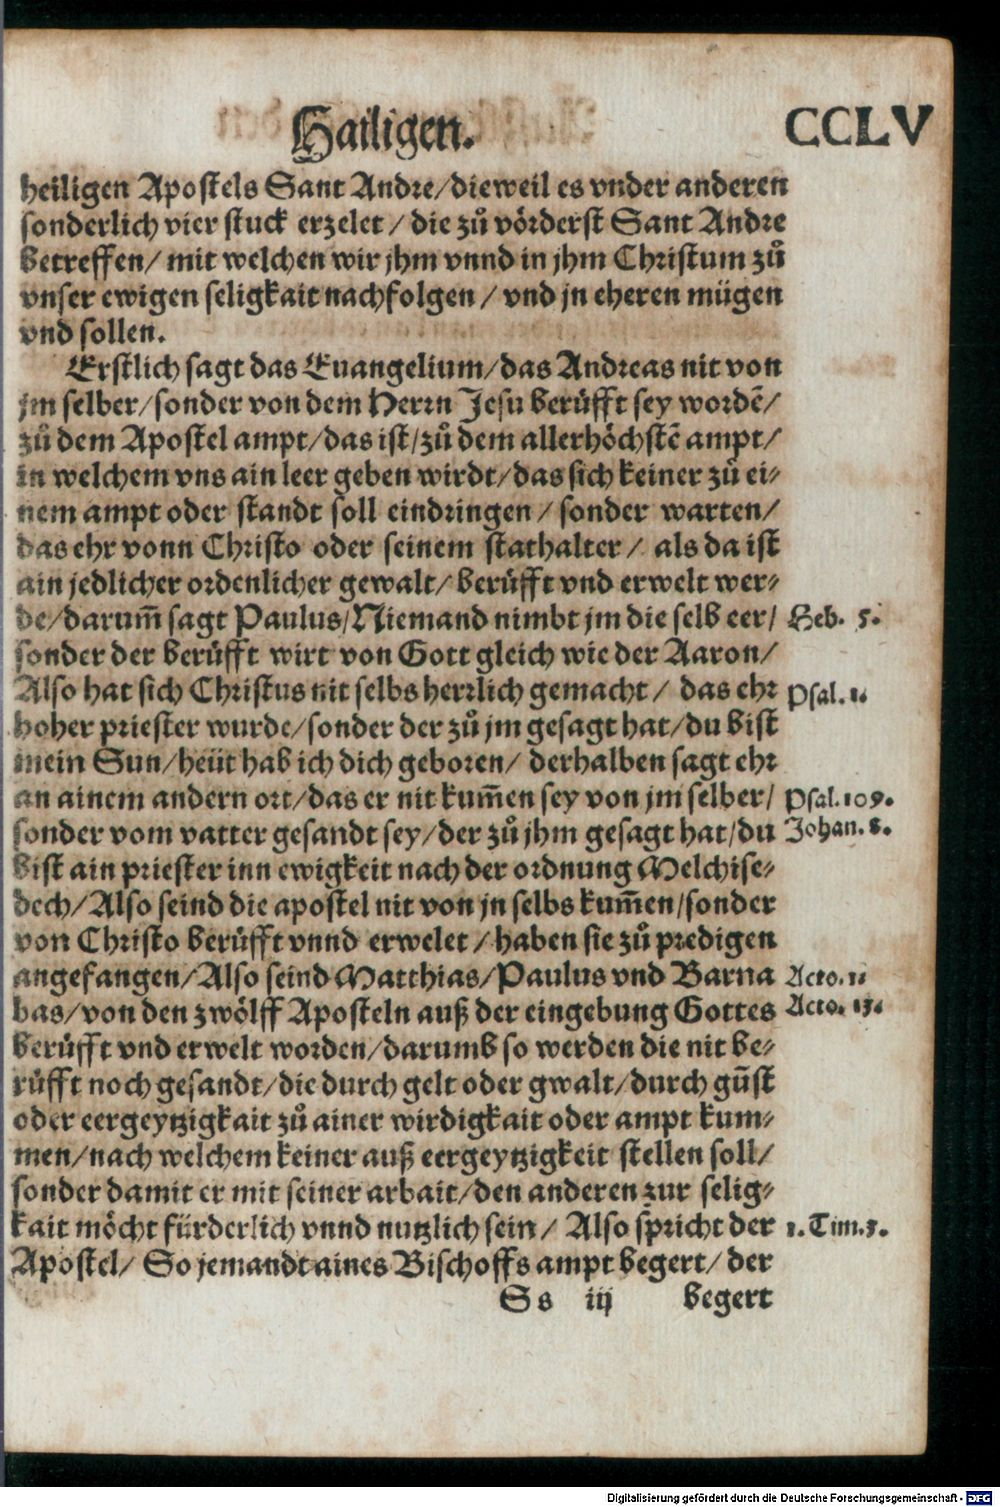 Hailigen. CCLV
heiligen Apostels Sant Andre/dieweil es vnder anderen
sonderlich vier stuck erzelet / die zů vörderst Sant Andre
betreffen/ mit welchen wir jhm vnnd in jhm Christum zů
vnser ewigen seligkait nachfolgen / vnd jn eheren mügen
vnd sollen.
Erstlich sagt das Euangelium/das Andreas nit von
jm selber/sonder von dem Herrn Jesu berůfft sey wordẽ/
zů dem Apostel ampt/das ist/zů dem allerhöchstẽ ampt/
in welchem vns ain leer geben wirdt/das sich keiner zů ei-
nem ampt oder standt soll eindringen / sonder warten/
das ehr vonn Christo oder seinem stathalter / als da ist
ain jedlicher ordenlicher gewalt/ berůfft vnd erwelt wer-
de/darum̃ sagt Paulus/Niemand nimbt jm die selb eer/ Heb. 5.
sonder der berůfft wirt von Gott gleich wie der Aaron/
Also hat sich Christus nit selbs herrlich gemacht / das ehr Psal. 1.
hoher priester wurde/sonder der zů jm gesagt hat/du bist
mein Sun/heüt hab ich dich geboren/ derhalben sagt ehr
an ainem andern ort/das er nit kum̃en sey von jm selber/ Psal. 109.
sonder vom vatter gesandt sey/der zů jhm gesagt hat/du Johan. 8.
bist ain priester inn ewigkeit nach der ordnung Melchise-
dech/Also seind die apostel nit von jn selbs kum̃en/sonder
von Christo berůfft vnnd erwelet / haben sie zů predigen
angefangen/Also seind Matthias/Paulus vnd Barna Acto. 1.
bas/von den zwölff Aposteln auß der eingebung Gottes Acto. 13.
berůfft vnd erwelt worden/darumb so werden die nit be-
růfft noch gesandt/die durch gelt oder gwalt/durch gũst
oder eergeytzigkait zů ainer wirdigkait oder ampt kum-
men/nach welchem keiner auß eergeytzigkeit stellen soll/
sonder damit er mit seiner arbait/den anderen zur selig-
kait möcht fürderlich vnnd nutzlich sein/ Also spricht der 1. Tim. 3.
Apostel/ So jemandt aines Bischoffs ampt begert/ der
Ss iij begert
Digitalisierung gefördert durch die Deutsche Forschungsgemeinschaft - DFG